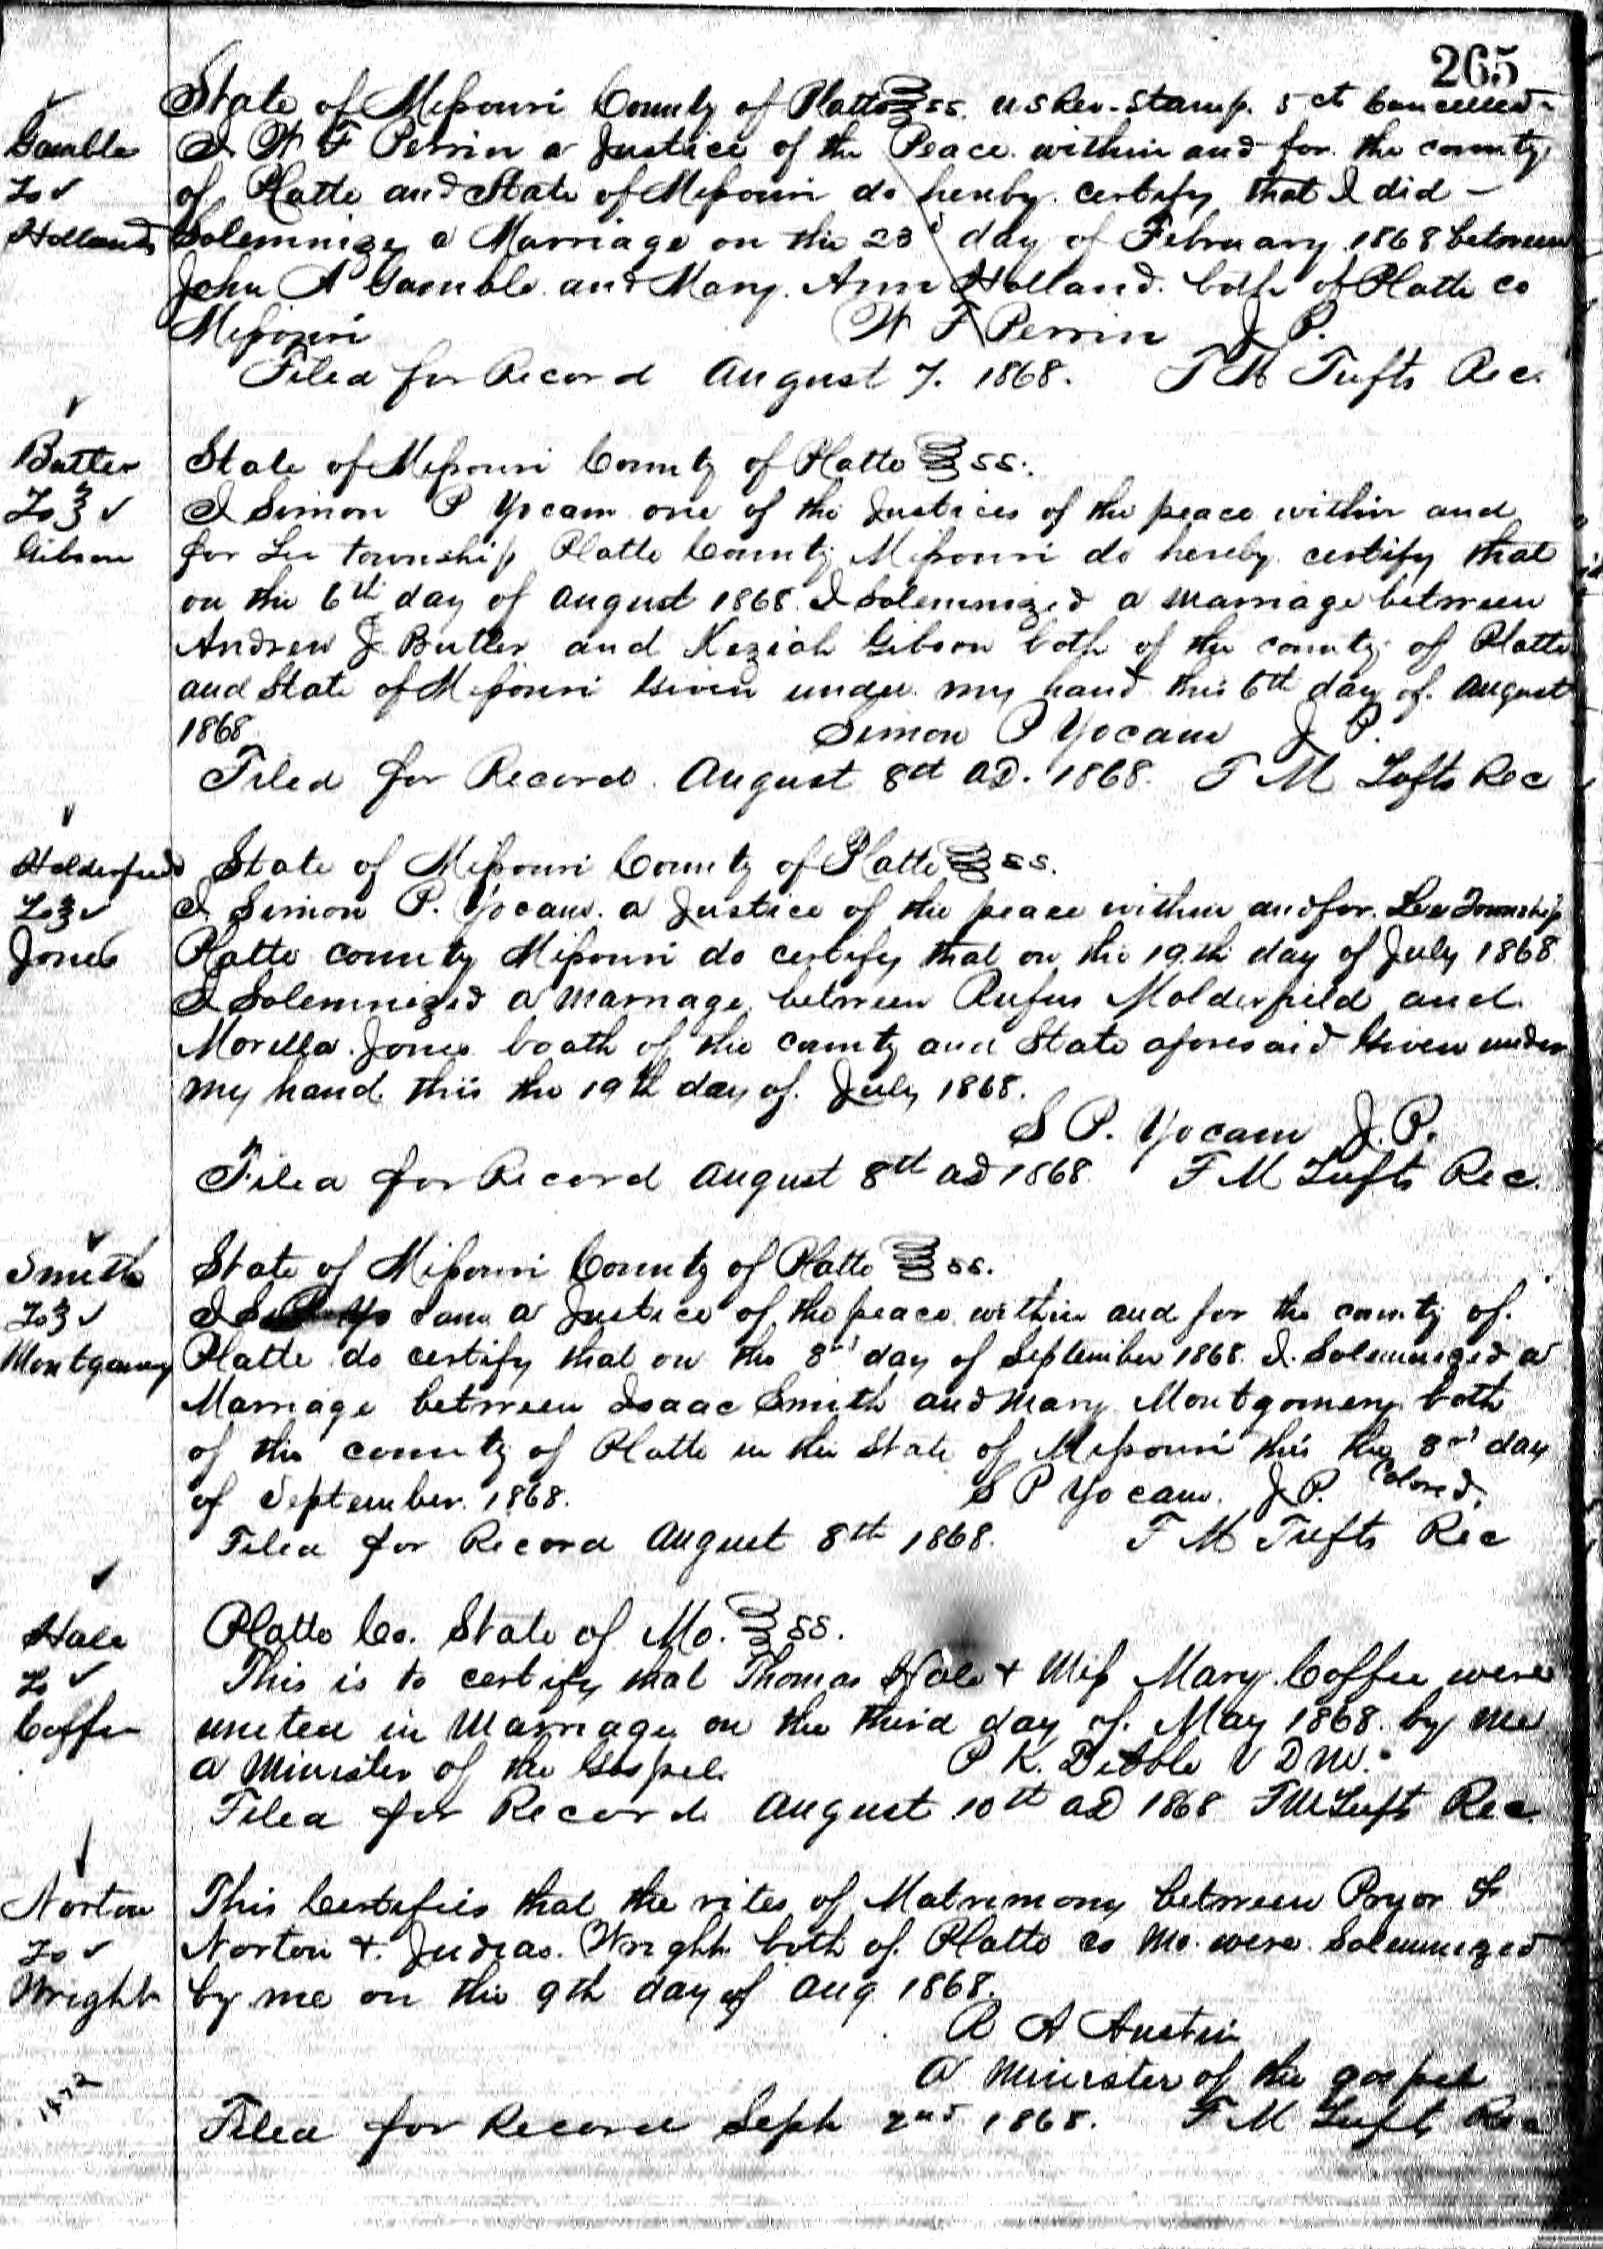 265
State of Missouri County of Platte ss. U S Rev. Stamp. 5 ct Cancelled
Gamble
to
Holland
I W F Perrin a Justice of the Peace within and for the county
of Platte and State of Missouri do hereby certify that I did
Solemnize a Marriage on the 23d day of February 1868 between
John A Gamble and Mary Ann Holland both of Platte Co
Missouri W F Perrin J P.
Filed for Record August 7. 1868. T M Tufts Rec.
Butler
to
Gibson
State of Missouri County of Platte ss.
I Simon P Yocam one of the Justices of the peace within and
for Lee township Platte County Missouri do hereby certify that
on the 6th day of August 1868 I Solemnized a marriage between
Andrew J Butler and Keziah Gibson both of the county of Platte
and State of Missouri Given under my hand this 6th day of August
1868 Simon P Yocam J P.
Filed for Record August 8th AD. 1868. F M Tufts Rec
Holderfield
to
Jones
State of Missouri County of Platte ss.
I Simon P. Yocam a Justice of the peace within and for Lee Township
Platte county Missouri do certify that on the 19th day of July 1868
I Solemnized a marriage between Rufus Molderfield and
Morella Jones boath of the county and State aforesaid Given under
my hand this the 19th day of July 1868.
S P. Yocam J. P.
Filed for Record August 8th AD 1868 F M Tufts Rec.
Smith
to
Montgomery
State of Missouri County of Platte ss.
I S P Yocam a Justice of the peace within and for the county of
Platte do certify that on the 3rd day of September 1868. I Solemnized a
Marriage between Isaac Smith and Mary Montgomery both
of the county of Platte in the State of Missouri this the 3rd day
of September 1868. S P Yocam J P. Colored.
Filed for Record August 8th 1868. F M Tufts Rec
Hale
to
Coffee
Platte Co. State of Mo. ss.
This is to certify that Thomas Hale & Miss Mary Coffee were
united in Marriage on the third day of May 1868 by me
a Minister of the Gospel. P K. Dibble V D M.
Filed for Record August 10th AD 1868 F M Tufts Rec.
Norton
to
Wright
This Certifies that the rites of Matrimony between Pryor F
Norton & Judias Wright both of Platte co Mo. were Solemnized
by me on the 9th day of Aug 1868.
R A Austin
a minister of the gospel
Filed for Record Sept 2nd 1868. F M Tufts Rec